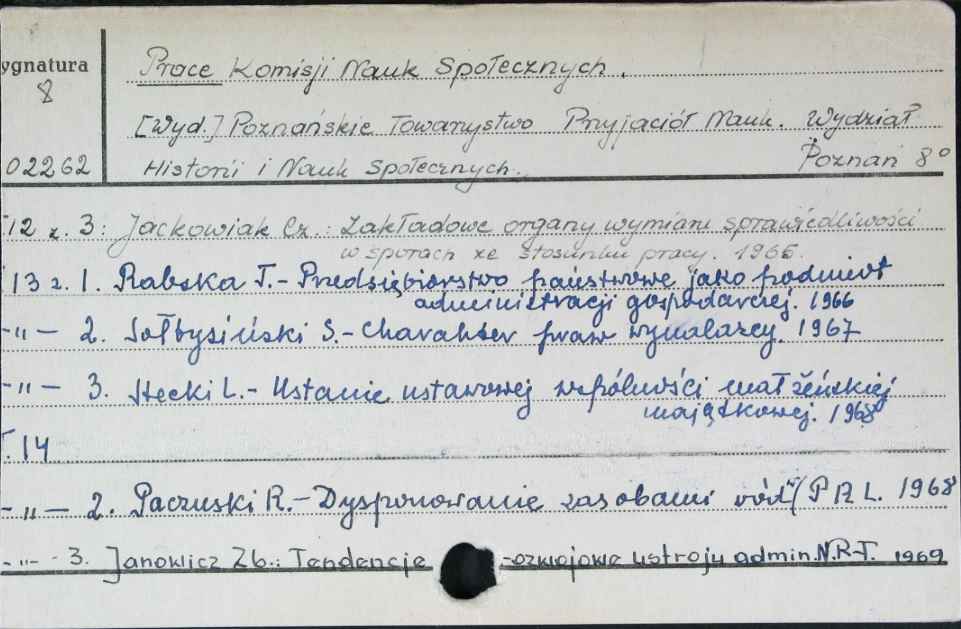 ygnatura
8
Prace Komisji Nauk Społecznych.
[Wyd.] Poznańskie Towarzystwo Przyjaciół Nauk. Wydział
02262 Historii i Nauk Społecznych. Poznań 8°
T12 z. 3: Jackowiak Cz.: Zakładowe organy wymiaru sprawiedliwości
w sporach ze stosunku pracy. 1965.
T13 z. 1. Rabska T.- Przedsiębiorstwo państwowe jako podmiot
administracji gospodarczej. 1966
-"- 2. Sołtysiński S.- Charakter praw wynalazcy. 1967
-"- 3. Stecki L.- Ustanie ustawowej wspólności małżeńskiej
majątkowej. 1968
T.14
-"- 2. Paczuski R.- Dysponowanie zasobami wód PRL. 1968
-"- 3. Janowicz Zb.: Tendencje -ozwojowe ustroju admin. N.R-F. 1969